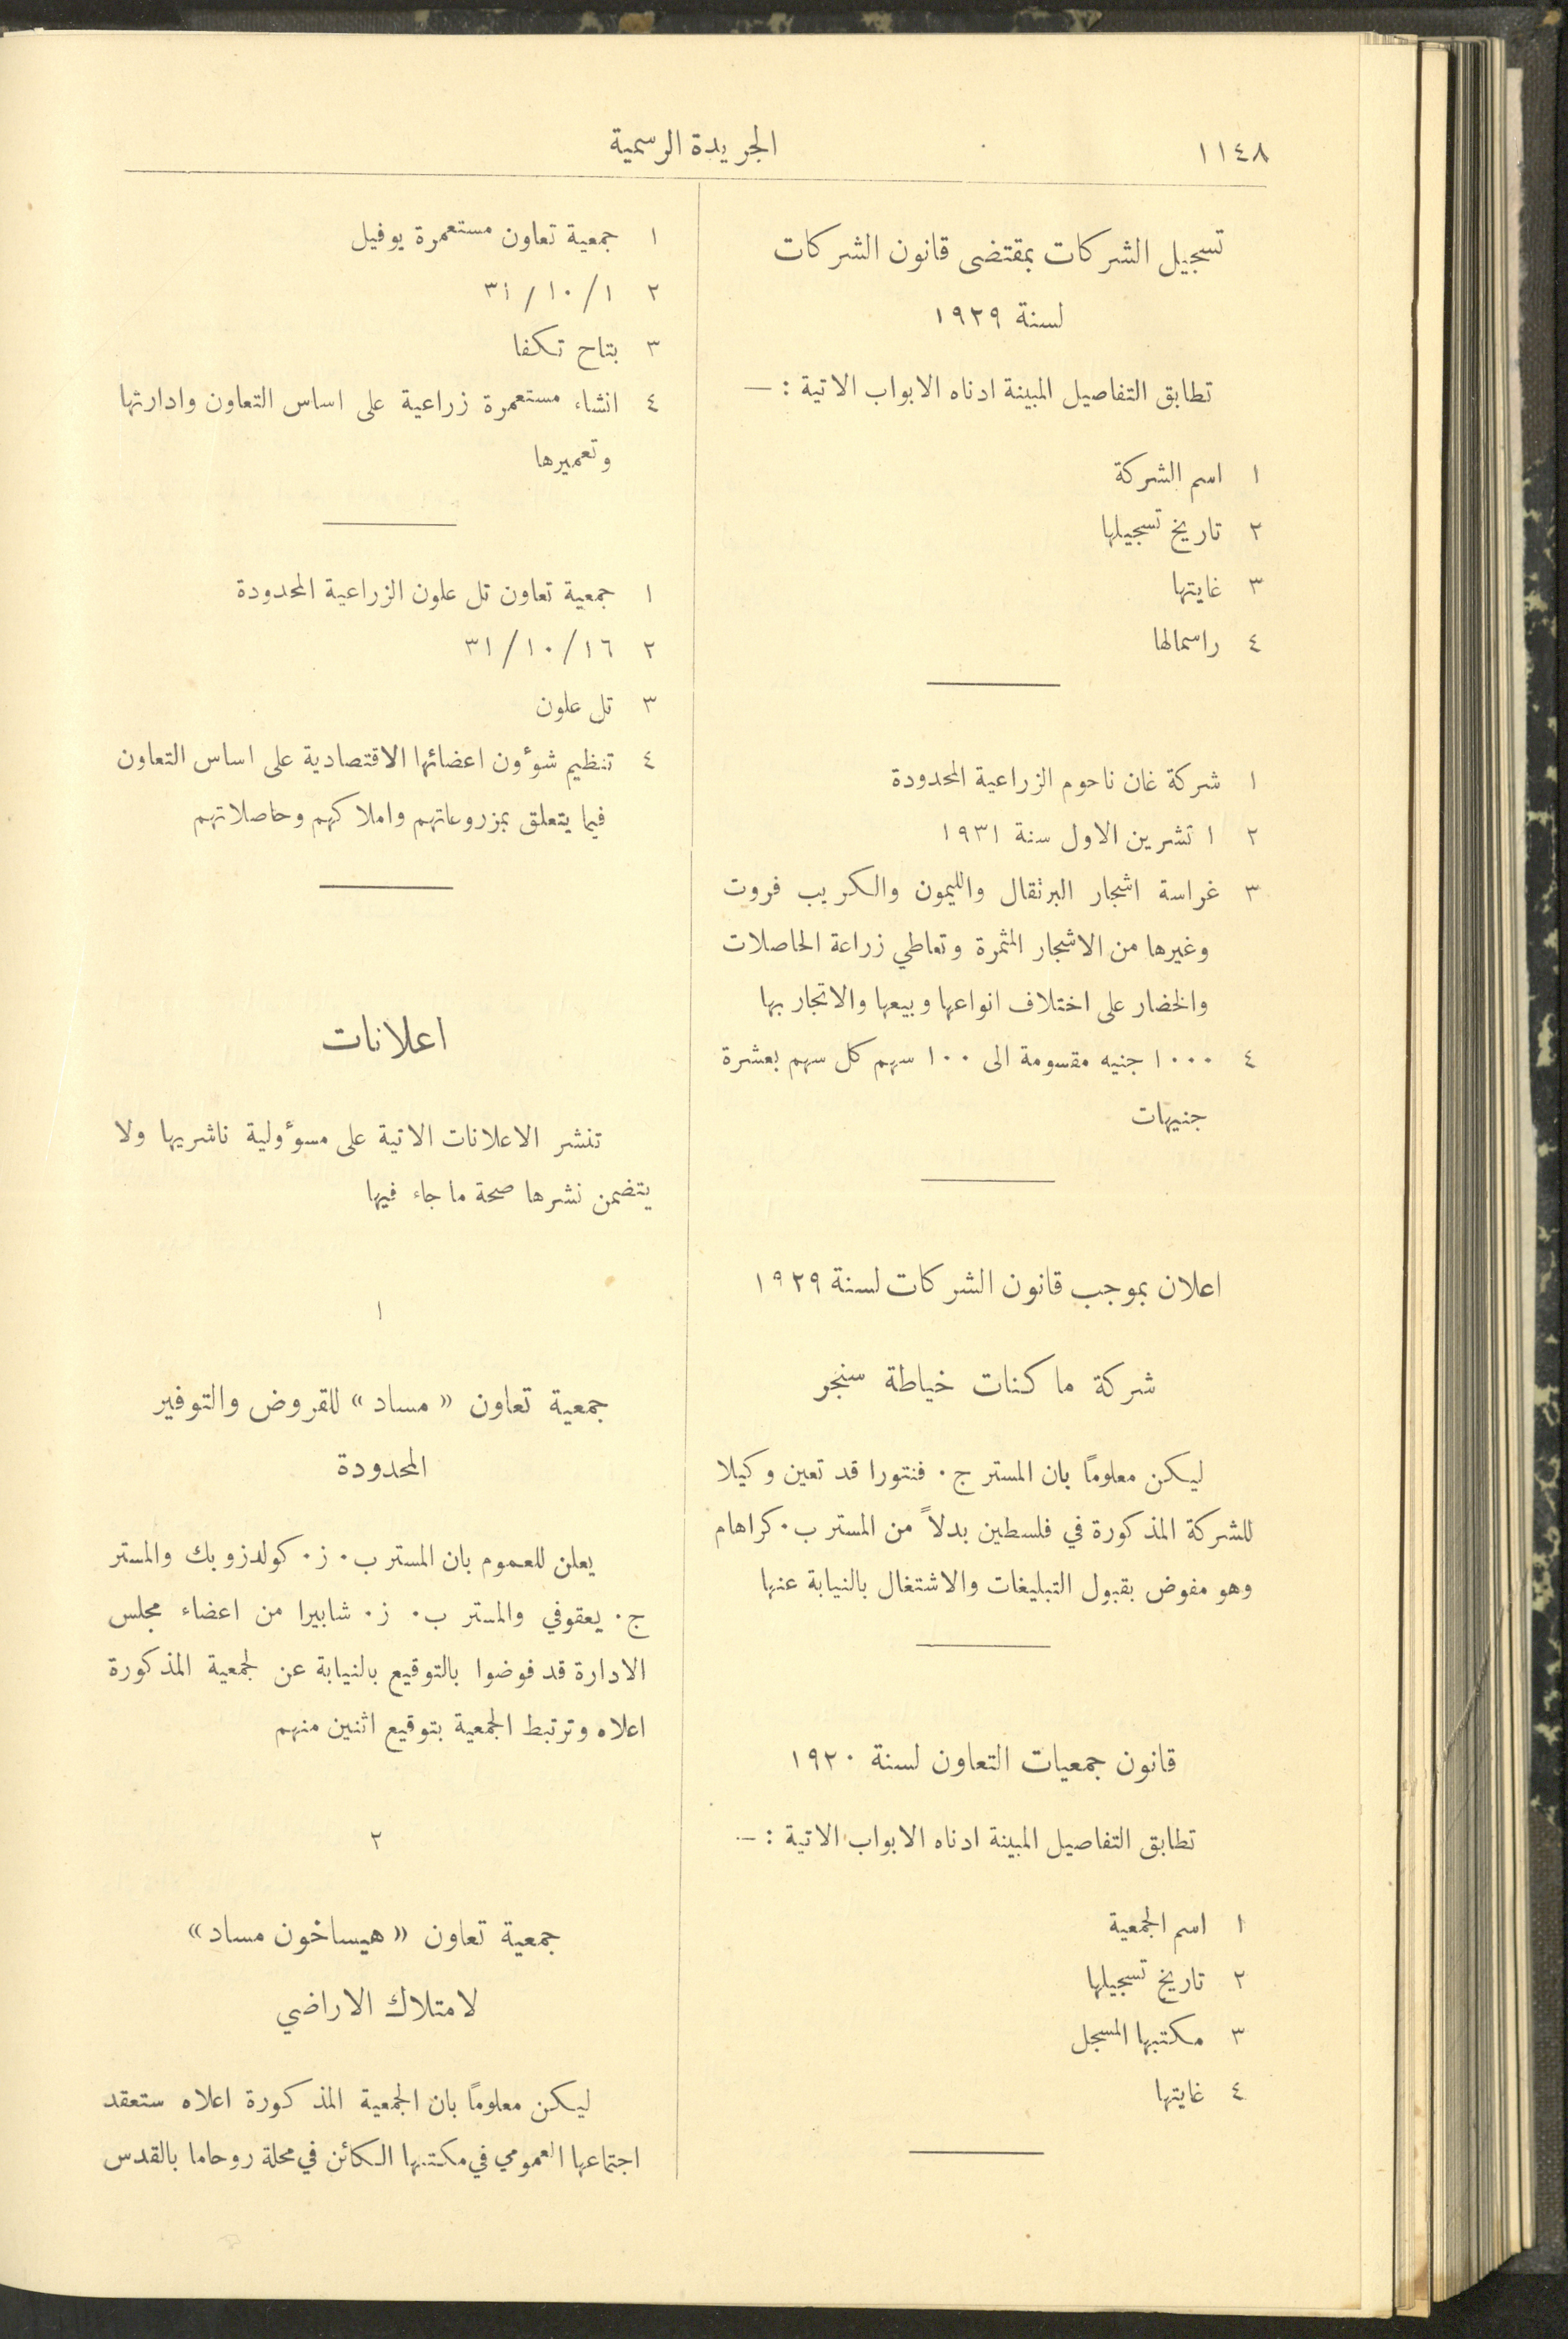 ١١٤٨
الجريدة الرسمية
تسجيل الشركات بمقتضى قانون الشركات
لسنة ١٩٢٩
تطابق التفاصيل المبينة ادناه الابواب الاتية : —
١ اسم الشركة
٢ تاريخ تسجيلها
٣ غايتها
٤ راسمالها
١ شركة غان ناحوم الزراعية المحدودة
٢ ١ تشرين الاول سنة ١٩٣١
٣ غراسة اشجار البرتقال والليمون والكريب فروت
وغيرها من الاشجار المثمرة وتعاطي زراعة الحاصلات
والخضار على اختلاف انواعها وبيعها والاتجار بها
٤ ١٠٠٠ جنيه مقسومة الى ١٠٠ سهم كل سهم بعشرة
جنيهات
اعلان بموجب قانون الشركات لسنة ١٩٢٩
شركة ماكنات خياطة سنجر
ليكن معلوماً بان المستر ج. فنتورا قد تعين وكيلا
للشركة المذكورة في فلسطين بدلاً من المستر ب. كراهام
وهو مفوض بقبول التبليغات والاشتغال بالنيابة عنها
قانون جمعيات التعاون لسنة ١٩٢٠
تطابق التفاصيل المبينة ادناه الابواب الاتية : —
١ اسم الجمعية
٢ تاريخ تسجيلها
٣ مكتبها المسجل
٤ غايتها
١ جمعية تعاون مستعمرة يوفيل
٢ ٣١/١٠/١
٣ بتاح تكفا
٤ انشاء مستعمرة زراعية على اساس التعاون وادارتها
وتعميرها
١ جمعية تعاون تل علون الزراعية المحدودة
٢ ٣١/١٠/١٦
٣ تل علون
٤ تنظيم شوؤون اعضائها الاقتصادية على اساس التعاون
فيما يتعلق بمزروعاتهم واملاكهم وحاصلاتهم
اعلانات
تنشر الاعلانات الاتية على مسوؤولية ناشريها ولا
يتضمن نشرها صحة ما جاء فيها
١
جمعية تعاون «مساد» للقروض والتوفير
المحدودة
يعلن للعموم بان المستر ب. ز. كولدزوبك والمستر
ج. يعقوفي والمستر ب. ز. شابيرا من اعضاء مجلس
الادارة قد فوضوا بالتوقيع بالنيابة عن لجمعية المذكورة
اعلاه وترتبط الجمعية بتوقيع اثنين منهم
٢
جمعية تعاون «هيساخون مساد»
لامتلاك الاراضي
ليكن معلوماً بان الجمعية المذكورة اعلاه ستعقد
اجتماعها العمومي في مكتبها الكائن في محلة روحاما بالقدس